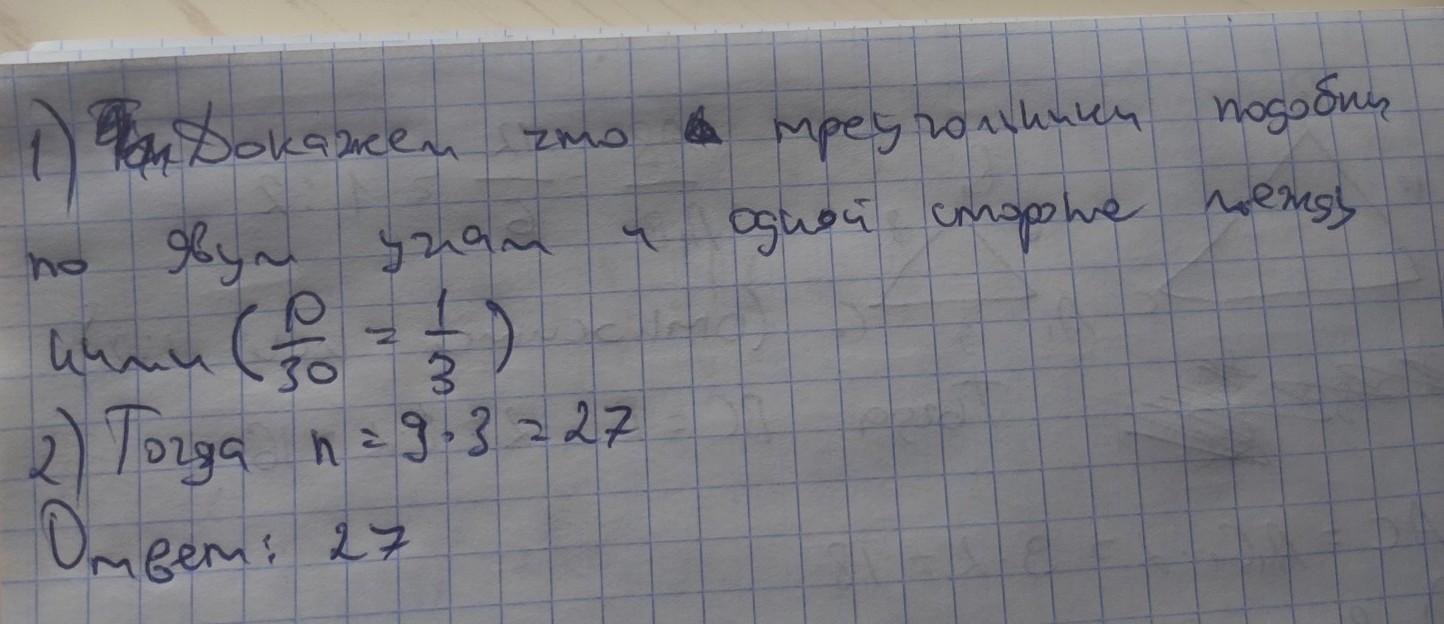 1) Докажем что треугольники подобны
по двум углам и одной стороне между
ними (10/30 = 1/3)
2) Тогда n = 9·3 = 27
Ответ: 27